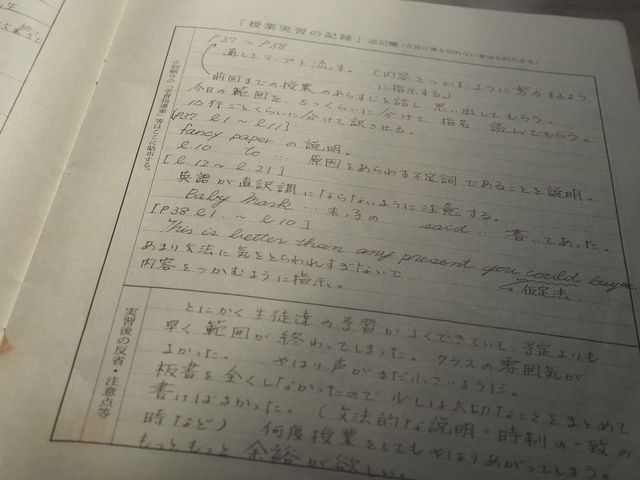 「授業実習の記録」追記欄（左頁に書き切れない事項を記入する）
P37 ～ P38
通してテープを流す。（内容をつかむように努力するように指示する。）
前回までの授業のあらすじを話し、思い出してもらう。
今日の範囲を 5つくらいに分けて 指名 読んでもらう。
10行ごとくらいに分けて訳させる。
[P37 l1 ～ l11]
fancy paper の説明。
l.10 to … 原因をあらわす不定詞であることを説明。
[l.12 ～ l.21]
英語が直訳調にならないように注意する。
Baby Mark … said … 書いてあった。
[P38 l1. ～ l10]
This is better than any present you could buy me
→ 仮定法
あまり文法に気をとられすぎないで
内容をつかむように指示。
実習後の反省・注意点等
とにかく生徒達の予習がよくできていて、予定よりも
早く範囲が終わってしまった。クラスの雰囲気が
よかった。 やはり声がまだ小さいようだ。
板書を全くしなかったので少しは大切なことをまとめて
書けばよかった。（文法的な説明＝時制の一致の
時など） 何度授業をしてもやはりあがってしまう。
もっともっと余裕が欲しい。